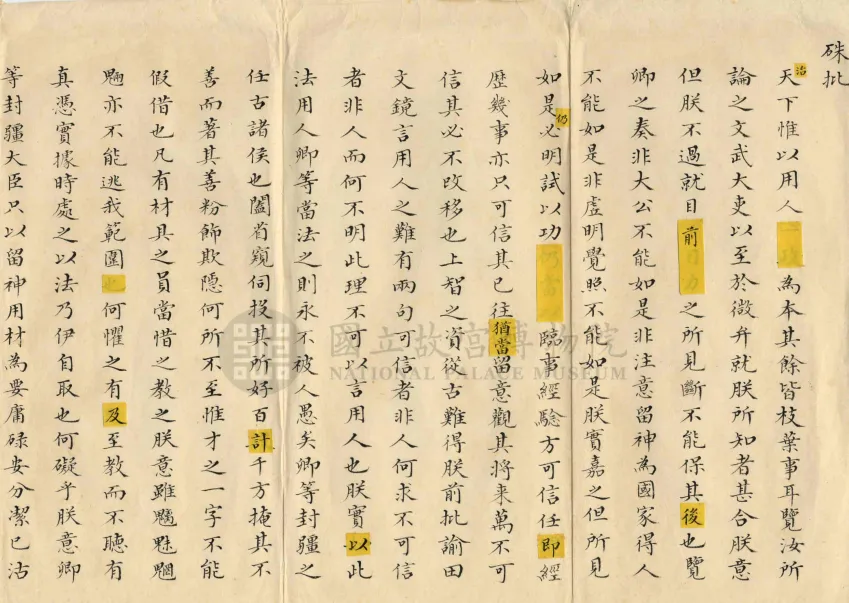 硃批
治天下惟以用人一政為本其餘皆枝葉事耳覽汝所
論之文武大吏以至於微弁就朕所知者甚合朕意
但朕不過就目前之所見斷不能保其後也覽
卿之奏非大公不能如是非注意留神為國家得人
不能如是非虛明覺照不能如是朕實嘉之但所見
如是仍必明試以功臨事經驗方可信任即經
歷幾事亦只可信其已往猶當留意觀其將來萬不可
信其必不改移也上智之資從古難得朕前批諭田
文鏡言用人之難有兩句可信者非人何求不可信
者非人而何不明此理不可以言用人也朕實以此
法用人卿等當法之則永不被人愚矣卿等封疆之
任古諸侯也闔省窺伺投其所好百計千方掩其不
善而著其善粉飾欺隱何所不至惟才之一字不能
假借也凡有材具之員當惜之教之朕意雖魑魅魍
魎亦不能逃我範圍何懼之有及至教而不聽有
真憑實據時處之以法乃伊自取也何礙乎朕意卿
等封疆大臣只以留神用材為要庸碌安分潔己沽
國立故宮博物院
NATIONAL PALACE MUSEUM